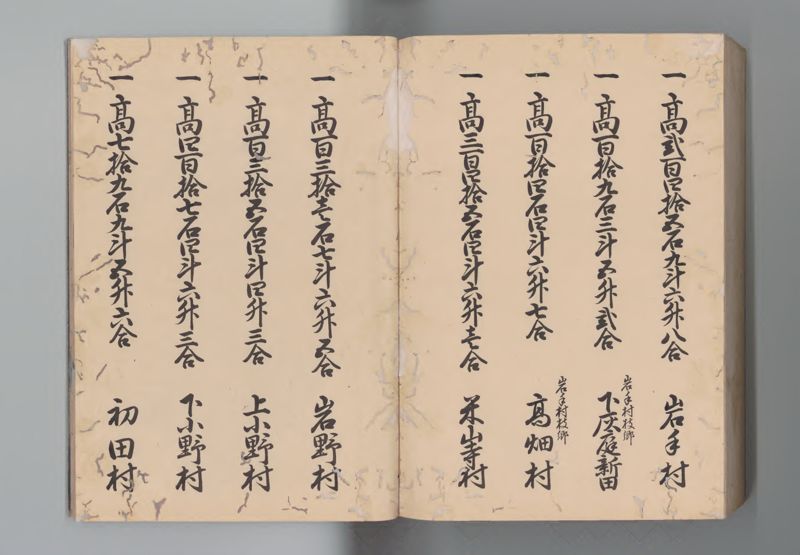 一高弐百四拾五石九斗六升八合 岩手村
一高百拾九石三斗五升弐合 岩手村枝郷 下灰庭新田
一高百拾四石四斗六升七合 岩手村枝郷 高畑村
一高三百四拾五石四斗六升壱合 米山寺村
一高百三拾壱石七斗六升五合 岩野村
一高百三拾五石四斗四升三合 上小野村
一高四百拾七石四斗六升三合 下小野村
一高七拾九石九斗五升六合 初田村